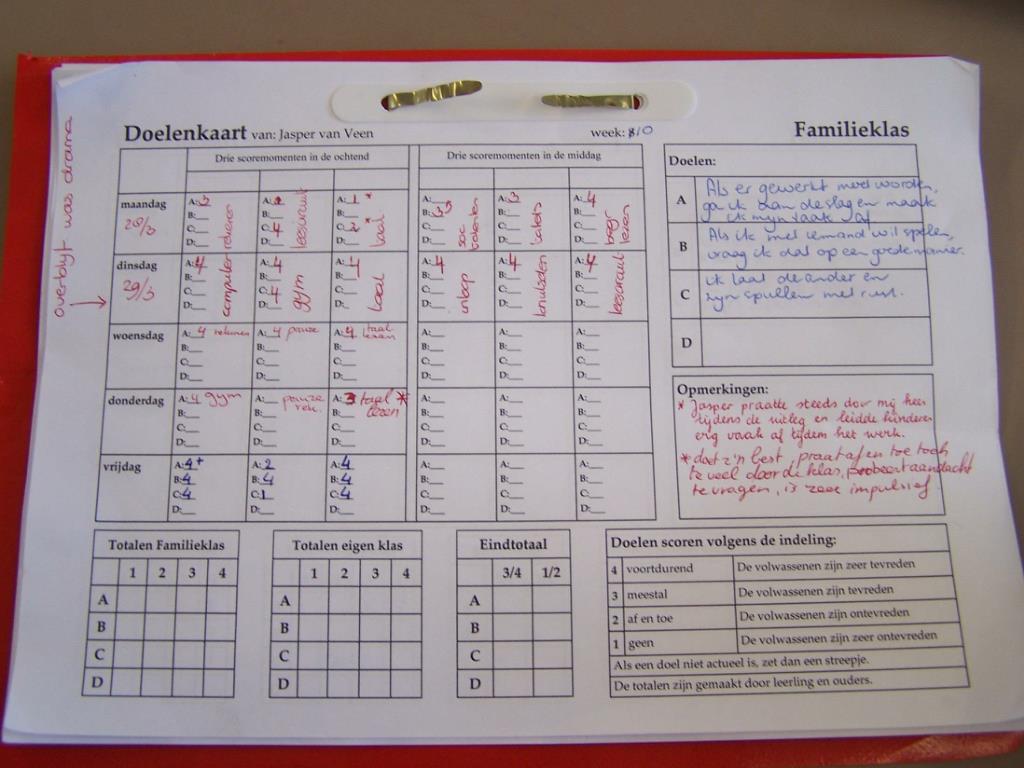 overblyf was drama
Doelenkaart van: Jasper van Veen
week: 10
Familieklas
Drie scoremomenten in de ochtend
Drie scoremomenten in de middag
maandag
28/3
A: 3
B:
C:
D:
rekenen
A: 2
B:
C: 4
D:
leescircuit
A: 1 *
B:
C: 2 *
D:
taal
A:
B: 3
C:
D:
soc
talenten
A: 3
B:
C:
D:
A: 4
B:
C:
D:
begr
lezen
dinsdag
29/3
A: 4
B:
C:
D:
computer
A: 4
B:
C: 4
D:
gym
A: 4
B:
C:
D:
taal
A: 4
B:
C:
D:
inloop
A: 4
B:
C:
D:
knutselen
A: 4
B:
C:
D:
leescircuit
woensdag
A: 4 rekenen
B:
C:
D:
A: 4 pauze
B:
C:
D:
A: 4 taal
lezen
B:
C:
D:
A:
B:
C:
D:
A:
B:
C:
D:
A:
B:
C:
D:
donderdag
A: 4 gym
B:
C:
D:
A: pauze
rek.
B:
C:
D:
A: 3 taal *
lezen
B:
C:
D:
A:
B:
C:
D:
A:
B:
C:
D:
A:
B:
C:
D:
vrijdag
A: 4+
B: 4
C: 4
D:
A: 2
B: 4
C: 1
D:
A: 4
B: 4
C: 4
D:
A:
B:
C:
D:
A:
B:
C:
D:
A:
B:
C:
D:
Doelen:
A
Als er gewerkt moet worden,
ga ik dan de slag en maak
ik mijn taak af
B
Als ik met iemand wil spelen,
vraag ik dat op een goede manier.
C
ik laat de ander en
zijn spullen met rust.
D
Opmerkingen:
* Jasper praatte steeds door mij heen
tijdens de uitleg en leidde kinderen
erg vaak af tijdens het werk.
* doet z'n best, praat af en toe toch
te veel door de klas, probeert aandacht
te vragen, is zeer impulsief.
Totalen Familieklas
1 2 3 4
A
B
C
D
Totalen eigen klas
1 2 3 4
A
B
C
D
Eindtotaal
3/4 1/2
A
B
C
D
Doelen scoren volgens de indeling:
4 voortdurend De volwassenen zijn zeer tevreden
3 meestal De volwassenen zijn tevreden
2 af en toe De volwassenen zijn ontevreden
1 geen De volwassenen zijn zeer ontevreden
Als een doel niet actueel is, zet dan een streepje.
De totalen zijn gemaakt door leerling en ouders.